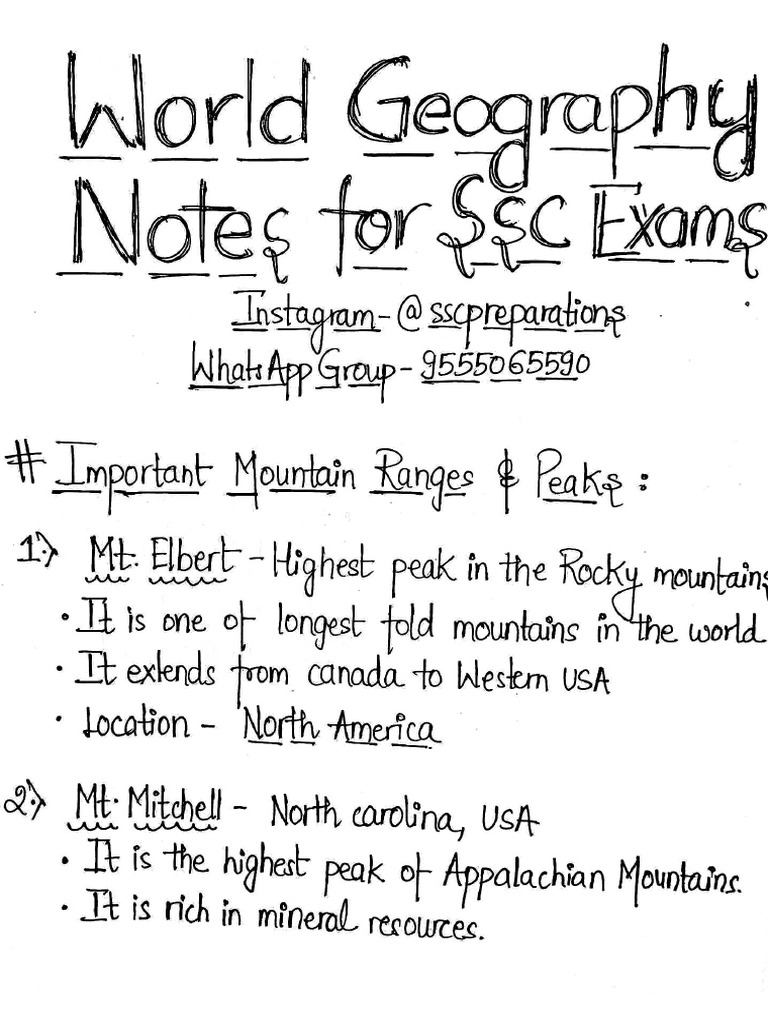 World Geography
Notes for SSC Exams
Instagram - @sscpreparations
WhatsApp Group - 9555065590
# Important Mountain Ranges & Peaks :
1.) Mt. Elbert - Highest peak in the Rocky mountains
• It is one of longest fold mountains in the world
• It extends from canada to Western USA
• Location - North America
2.) Mt. Mitchell - North carolina, USA
• It is the highest peak of Appalachian Mountains.
• It is rich in mineral resources.